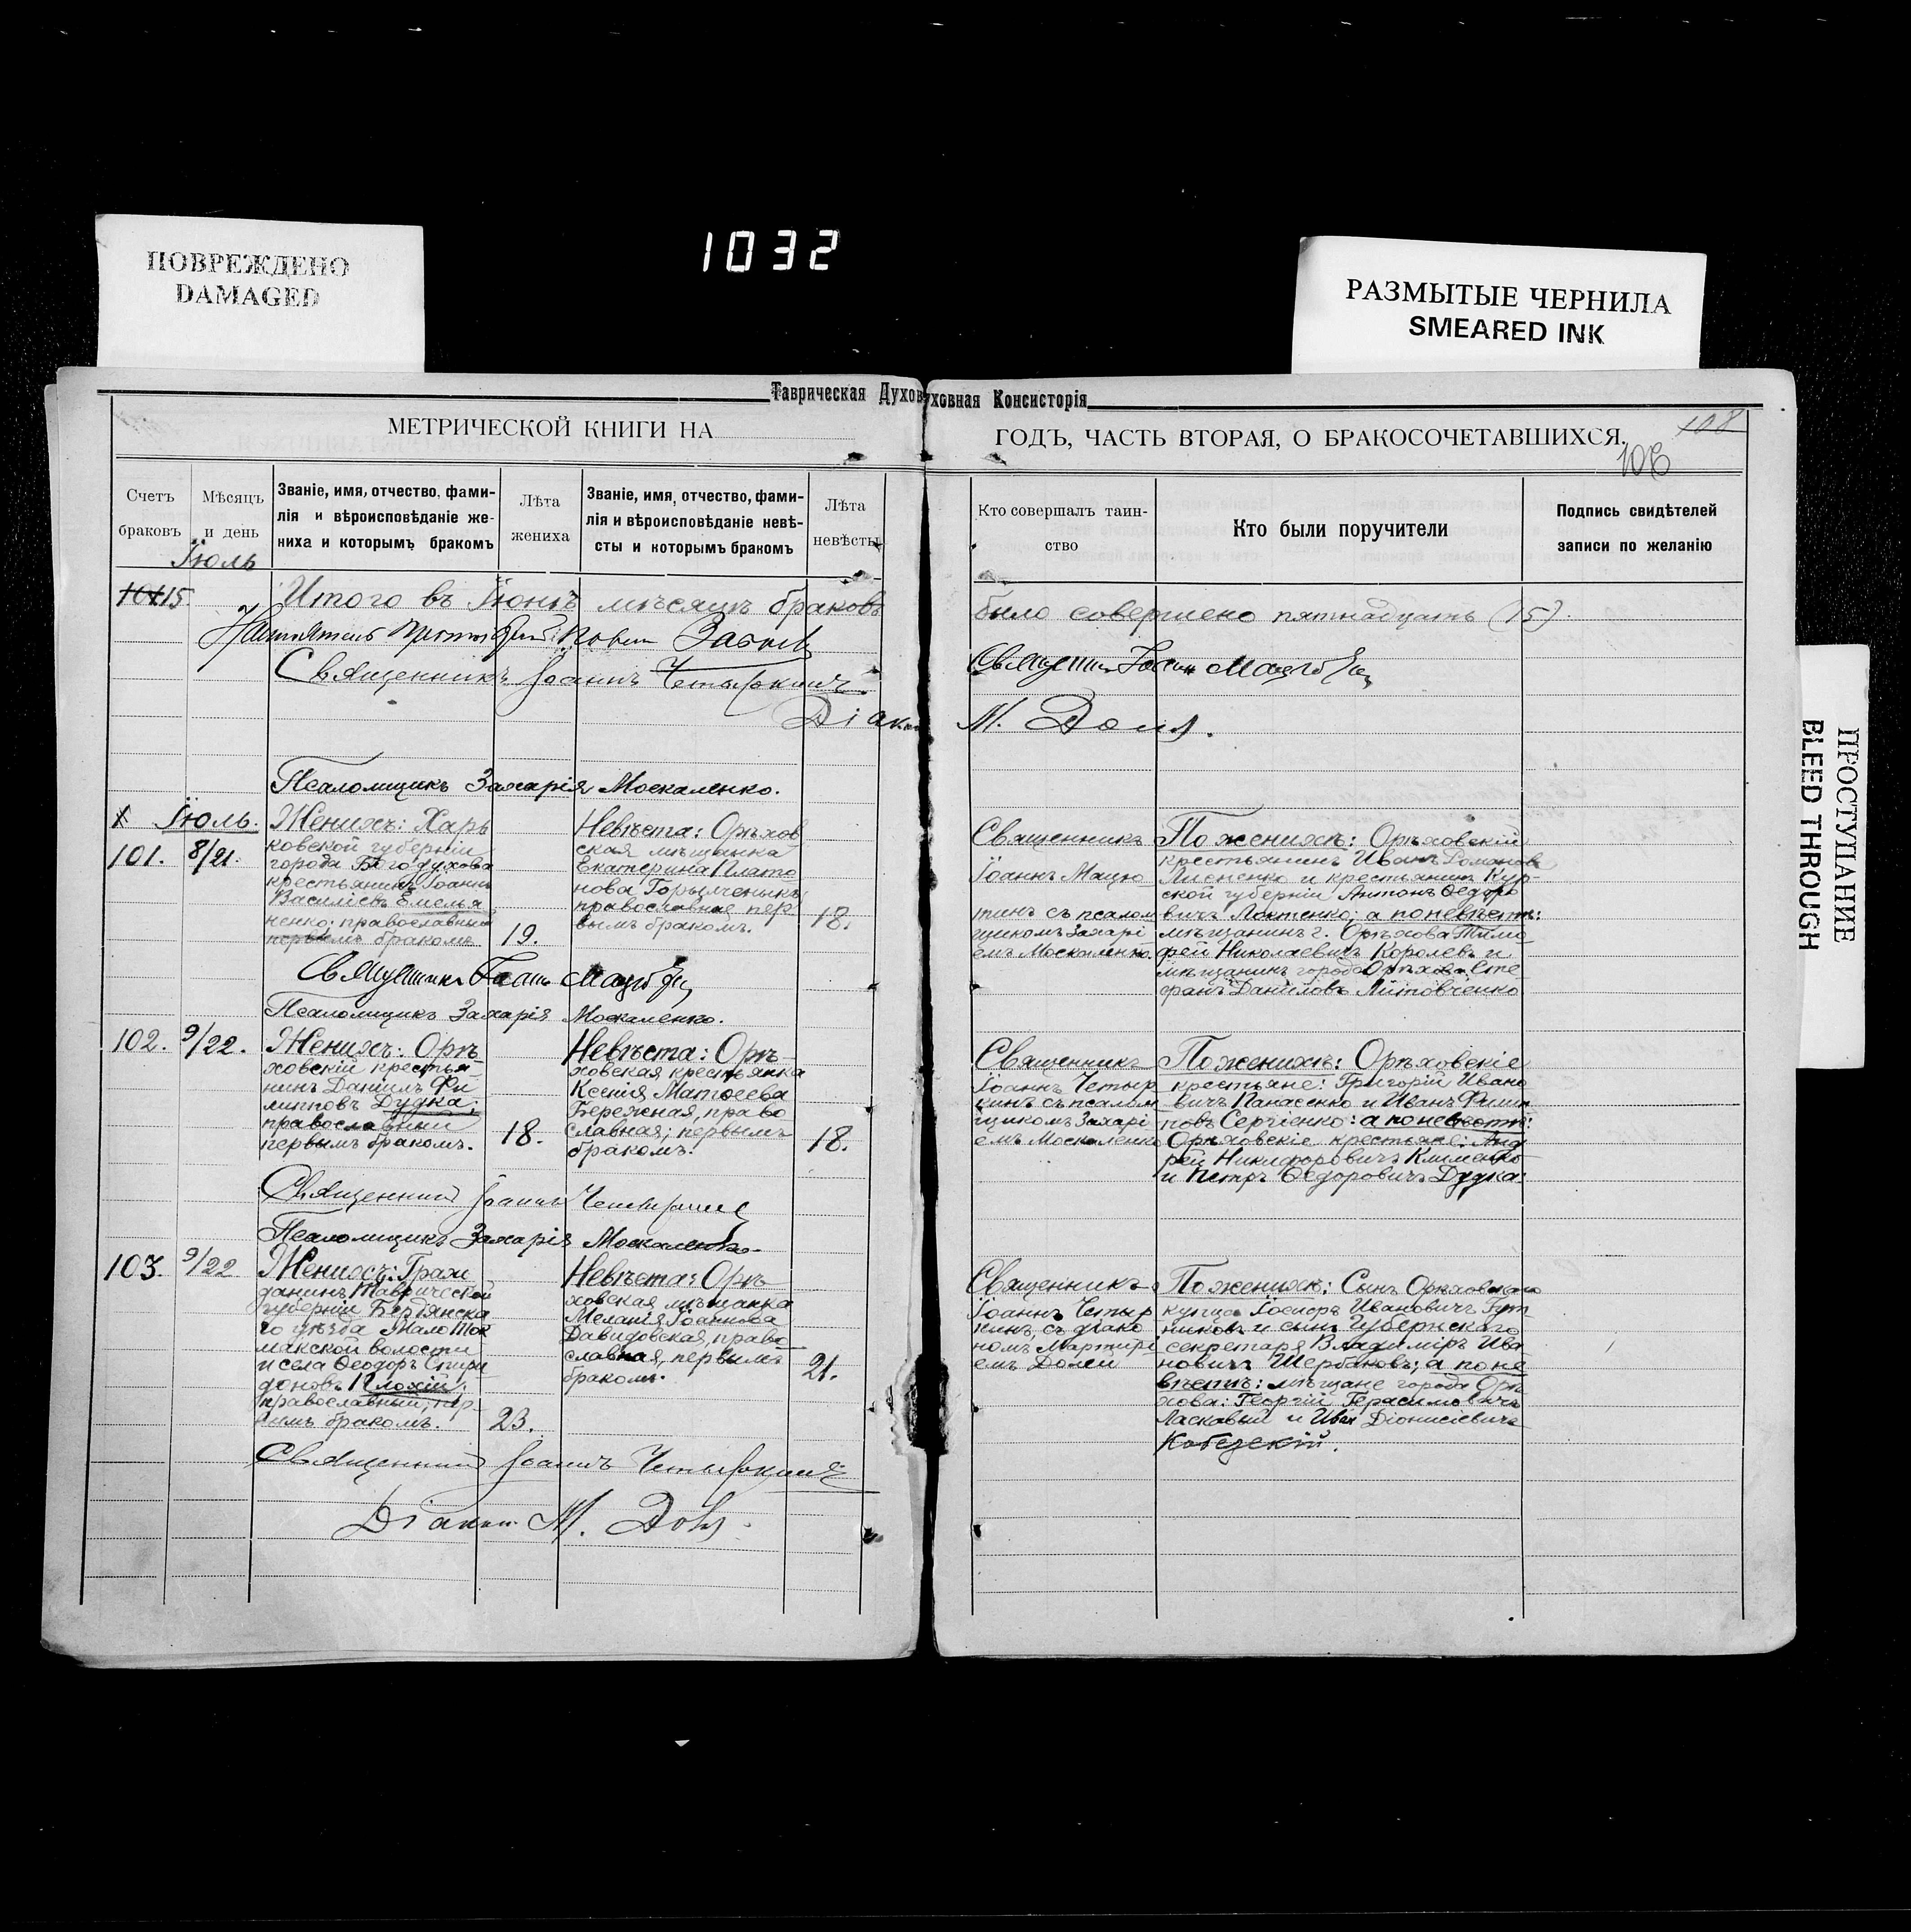 1032
ПОВРЕЖДЕНО
DAMAGED
РАЗМЫТЫЕ ЧЕРНИЛА
SMEARED INK
ПРОСТУПАНИЕ
BLEED THROUGH
Таврическая Духов
уховная Консисторія
МЕТРИЧЕСКОЙ КНИГИ НА
ГОДЪ, ЧАСТЬ ВТОРАЯ, О БРАКОСОЧЕТАВШИХСЯ.
108
Счетъ
браковъ
Мѣсяцъ
и день
Званіе, имя, отчество, фами-
лія и вѣроисповѣданіе же-
ниха и которымъ бракомъ
Лѣта
жениха
Званіе, имя, отчество, фами-
лія и вѣроисповѣданіе невѣ-
сты и которымъ бракомъ
Лѣта
невѣсты
Кто совершалъ таин-
ство
Кто были поручители
Подпись свидѣтелей
записи по желанію
Іюль
15. Итого въ Іюнѣ мѣсяцѣ браковъ
было совершено пятнадцать (15).
Священникъ Іоаннъ Четыркинъ
Діакон М. Доля.
Псаломщикъ Захарія Москаленко.
Іюль.
101.
8/21.
Женихъ: Харь
ковской губерніи
города Богодухова
крестьянинъ Іоаннъ
Василіевъ Емелья
ненко; православный
первымъ бракомъ
19.
Невѣста: Орѣхов
ская мѣщанка
Екатерина Плато
нова
православная пер
вымъ бракомъ.
18.
Священникъ
Іоаннъ Мацю
тинъ съ псалом
щикомъ Захарі
емъ Москаленко.
По женихѣ: Орѣховскій
крестьянинъ Иванъ Романовъ
Лисненко и крестьянинъ Кур-
ской губерніи Антонъ Ѳедоро
вичъ Локтенко; а по невѣстѣ:
мѣщанинъ г. Орѣхова Тимо
фей Николаевичъ Королевъ и
мѣщанинъ города Орѣхова Сте
фанъ Даниловъ Литовченко
Псаломщикъ Захарія Москаленко.
102.
9/22.
Женихъ: Орѣ
ховскій крестья-
нинъ Даніилъ Фи
липповъ Дудка;
православный
первымъ бракомъ.
18.
Невѣста: Орѣ
ховская крестьянка
Ксенія Матѳеева
Бережная, право
славная; первымъ
бракомъ.
18.
Священникъ
Іоаннъ Четыр
кинъ съ псалом
щикомъ Захарі
емъ Москаленко
По женихѣ: Орѣховскіе
крестьяне: Григорій Ивано
вичъ Панасенко и Иванъ Филип
повъ Сергіенко: а по невѣстѣ:
Орѣховскіе крестьяне: Анд
рей Никифоровичъ Клименко
и Петръ Ѳедоровичъ Дудка.
Священникъ Іоаннъ Четыркинъ
Псаломщикъ Захарія Москаленко
103.
9/22
Женихъ: Граж
данинъ Таврической
губерніи Бердянска
го уѣзда Мало Ток
макской волости
и села Ѳеодоръ Спири
доновъ Плохій;
православный; пер-
вымъ бракомъ.
23.
Невѣста: Орѣ
ховская мѣщанка
Меланія Іоаннова
Давидовская, право
славная, первымъ
бракомъ.
21.
Священникъ
Іоаннъ Четыр
кинъ, съ діако
номъ Мартирі
емъ Долей
По женихѣ: Сынъ Орѣховскаго
купца Іосифъ Ивановичъ Гут
никовъ и сынъ Губернскаго
секретаря Владиміръ Ива
новичъ Щербаковъ; а по не
вѣстѣ: мѣщане города Орѣ
хова: Георгій Герасимовичъ
Ласкавый и Иван Діонисіевичъ
Кобезскій.
Священникъ Іоаннъ Четыркинъ
Діакон М. Доля.